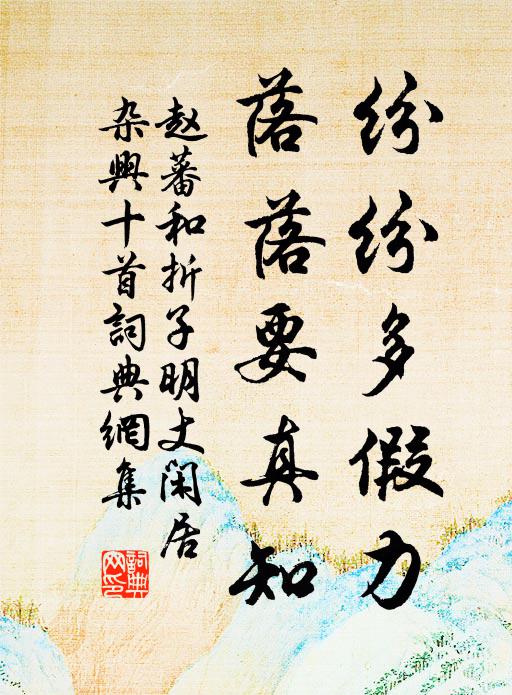 纷纷多假力
落落要真知
赵蕃和折子明丈闲居
杂興十首詞典網集
詞典
网印